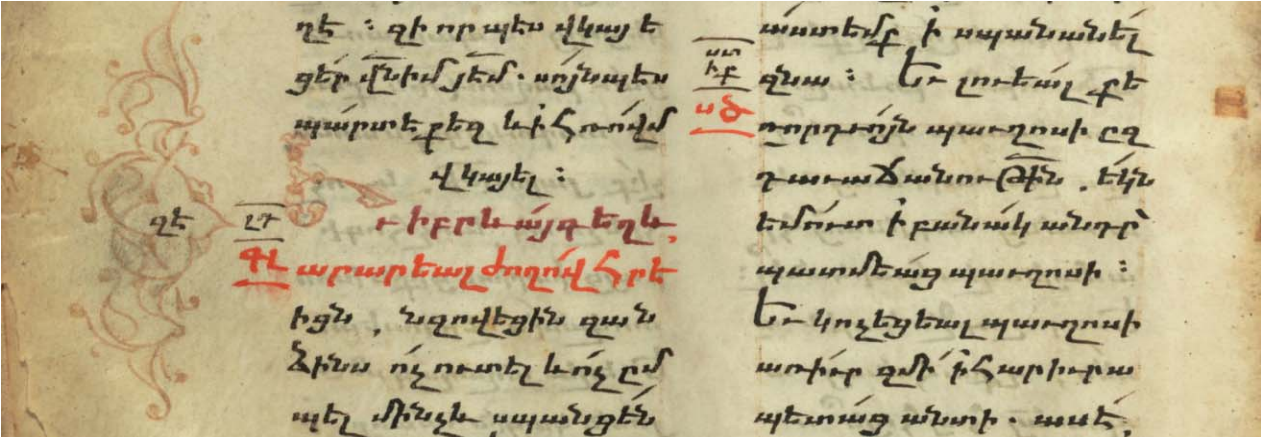 ղէ ։ զի որպէս վկայե
ցեր վն իմ յեմ. սոյնպէս
պարտ է քեզ և ի Հռովմ
վկայել ։
ւ իբրև այգ եղև,
արարեալ ժողով Հրէ
իցն , նզովեցին զան
ձինս ոչ ուտել և ոչ ըմ
պել մինչև սպանցեն
աստեմք ի սպանանել
զնա ։ Եւ լուեալ քե
ռորդւոյն պաւղոսի ըզ
դաւաճանութին . եկն
եմուտ ի բանակ անդր
պատմեաց պաւղոսի ։
Եւ կոչեցեալ պաւղոսի
առ իւր զմի ի հարիւրա
պետաց անտի . ասէ,